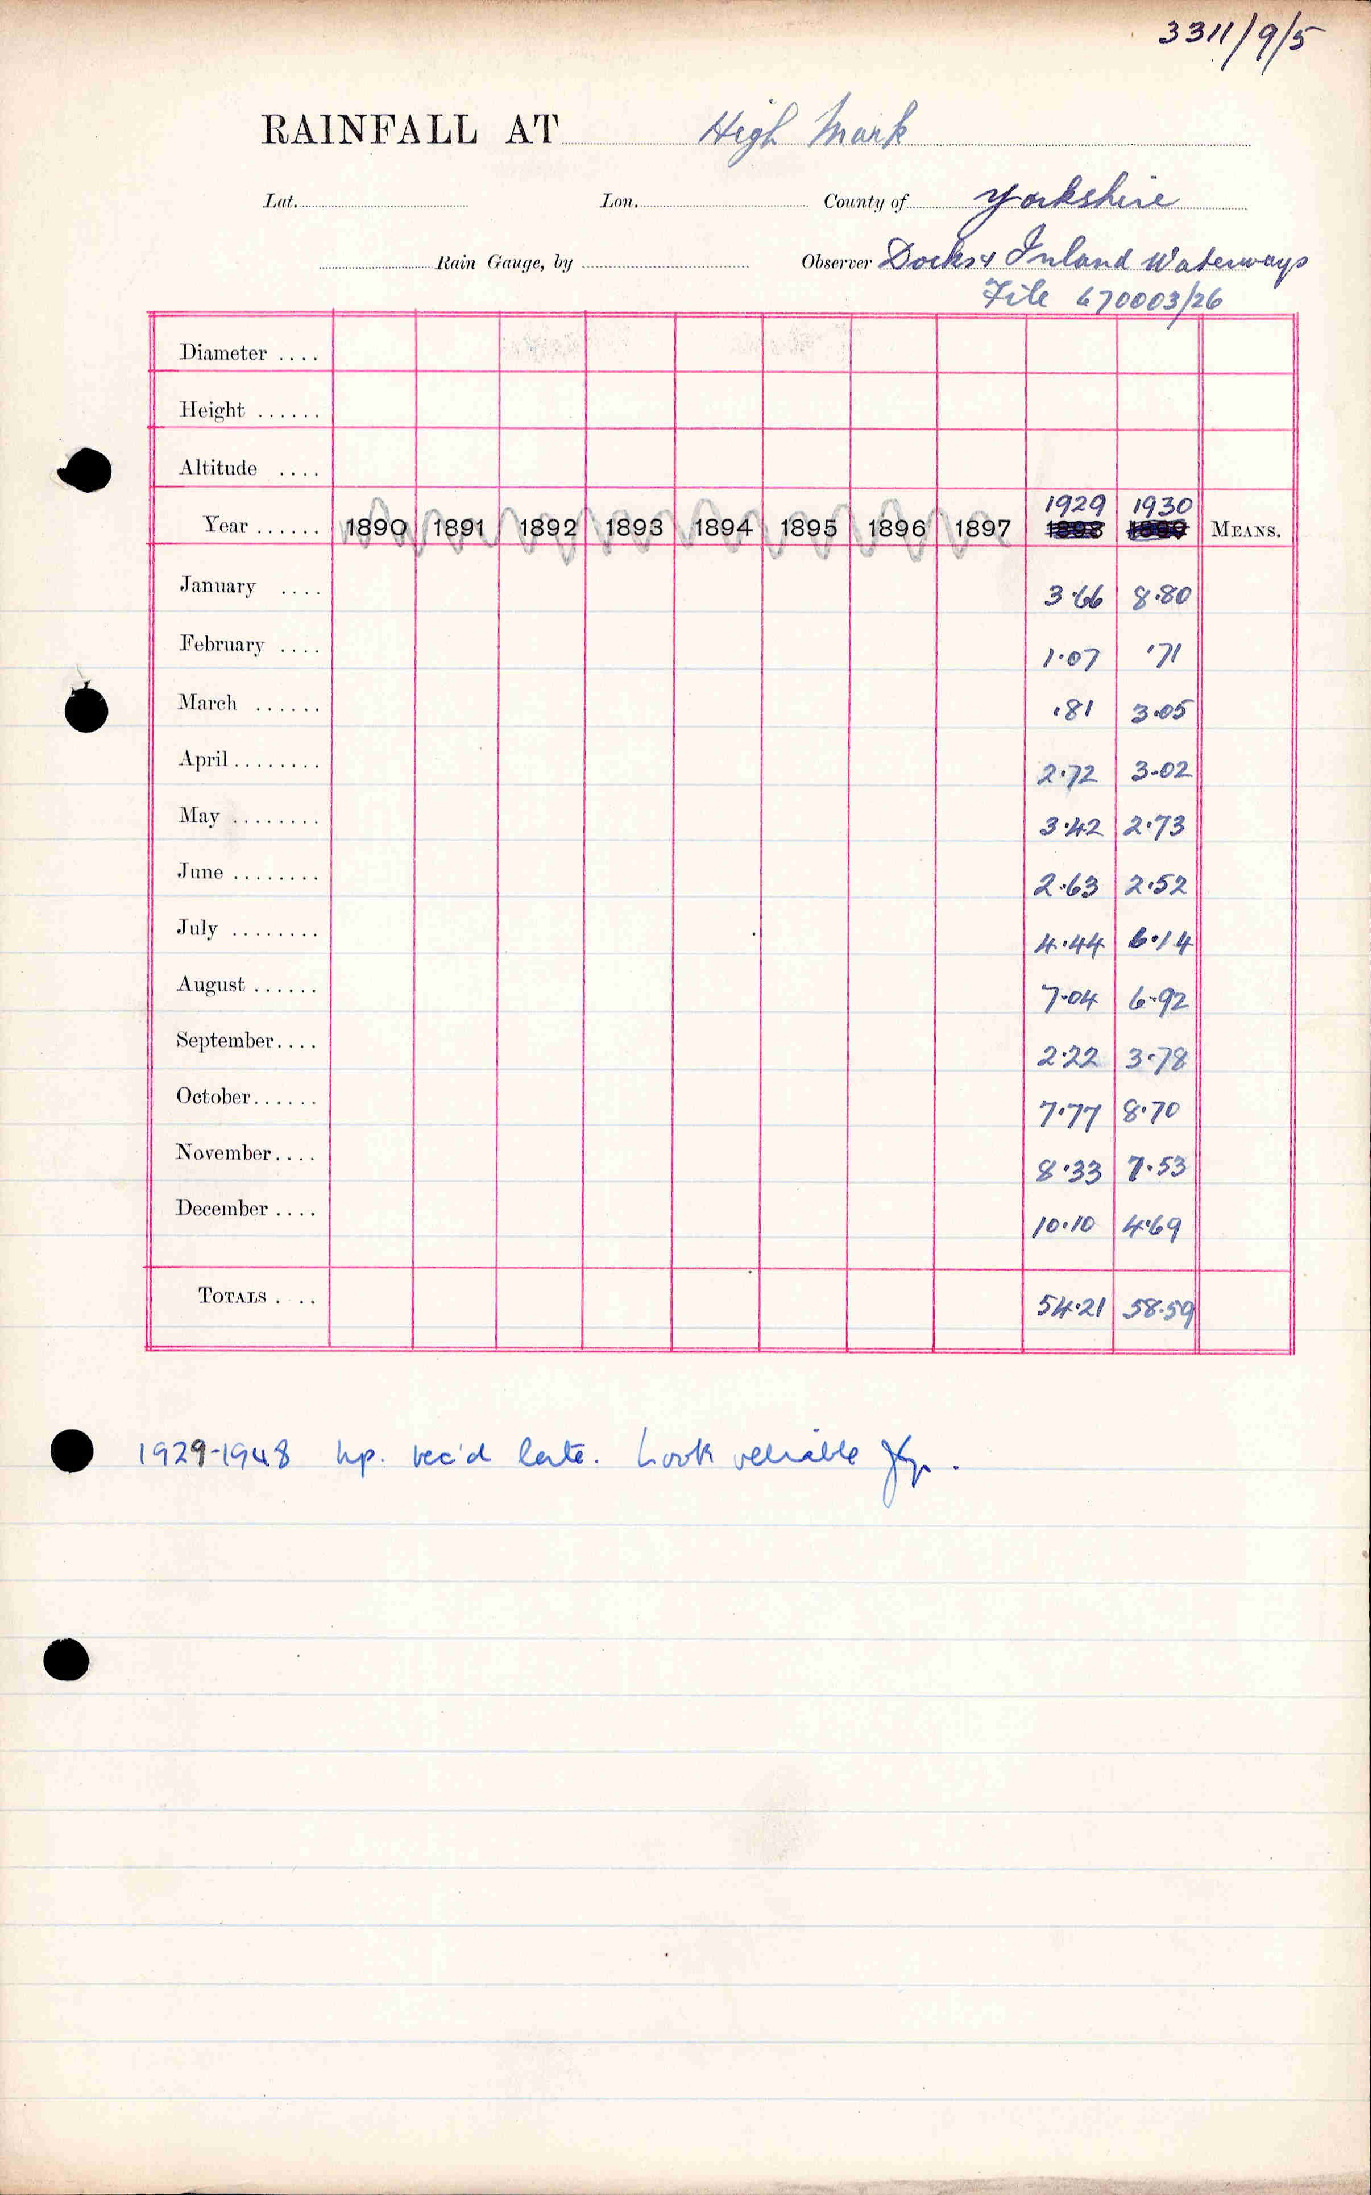 3311/9/5
RAINFALL AT High Mark
Lat. Lon. County of Yorkshire
Rain Gauge, by Observer Docks & Inland Waterways
File 670003/26
Diameter ....
Height ......
Altitude ....
1929 1930
Year ...... 1890 1891 1892 1893 1894 1895 1896 1897 1898 1899 MEANS.
January .... 3.66 8.80
February .... 1.07 .71
March ...... .81 3.05
April ........ 2.72 3.02
May ........ 3.42 2.73
June ........ 2.63 2.52
July ........ 4.44 6.14
August ...... 7.04 6.92
September .... 2.22 3.78
October ...... 7.77 8.70
November .... 8.33 7.53
December .... 10.10 4.69
TOTALS .... 54.21 58.59
1929-1948 rec'd late. Look reliable